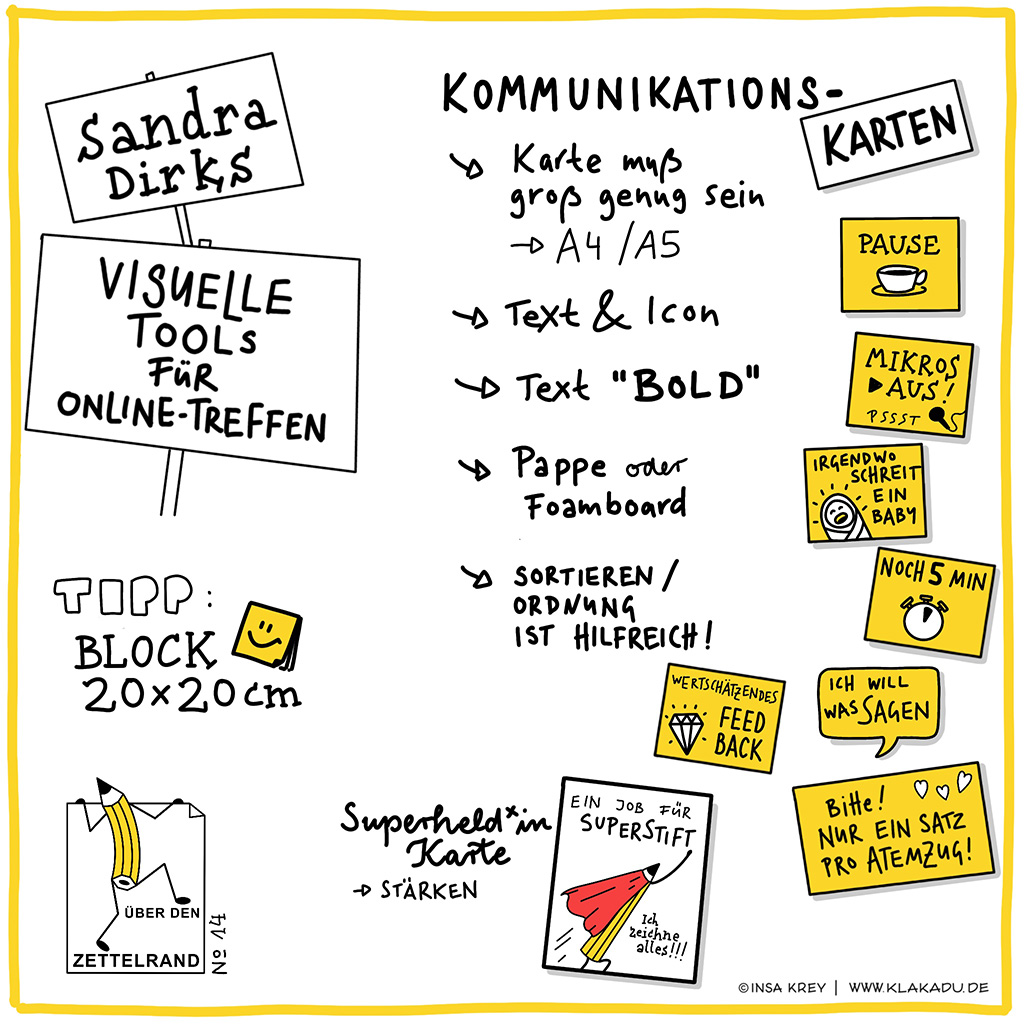 Sandra
Dirks
VISUELLE
TOOLS
FÜR
ONLINE-TREFFEN
TIPP:
BLOCK
20×20cm
ÜBER DEN
ZETTELRAND
Nº 14
KOMMUNIKATIONS-
KARTEN
Karte muß
groß genug sein
→ A4/A5
Text & Icon
Text "BOLD"
Pappe oder
Foamboard
SORTIEREN/
ORDNUNG
IST HILFREICH!
PAUSE
MIKROS
AUS!
PSSST
IRGENDWO
SCHREIT
EIN
BABY
NOCH 5 MIN
WERTSCHÄTZENDES
FEED
BACK
ICH WILL
WAS SAGEN
Bitte!
NUR EIN SATZ
PRO ATEMZUG!
Superheld*in
Karte
→ STÄRKEN
EIN JOB FÜR
SUPERSTIFT
Ich
zeichne
alles!!!
©INSA KREY | WWW.KLAKADU.DE